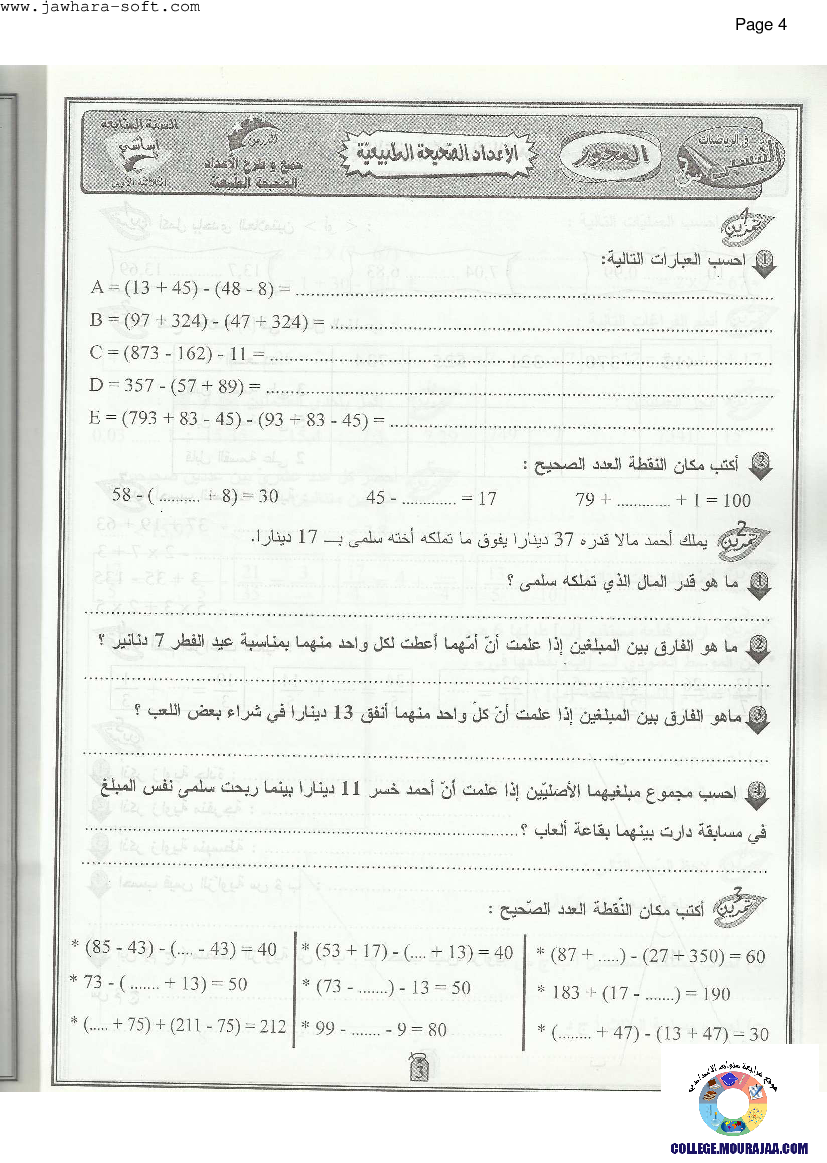 www.jawhara-soft.com
Page 4
السنة السابعة
أساسي
الثلاثي الأول
الدرس
جمع و طرح الأعداد
الصحيحة الطبيعية
الأعداد الصحيحة الطبيعيّة
المحور
في الرياضيات
تمرين 1
1 احسب العبارات التالية:
A = (13 + 45) - (48 - 8) = ..........
B = (97 + 324) - (47 + 324) = ..........
C = (873 - 162) - 11 = ..........
D = 357 - (57 + 89) = ..........
E = (793 + 83 - 45) - (93 + 83 - 45) = ..........
2 أكتب مكان النقطة العدد الصحيح :
58 - (.......... + 8) = 30 45 - ............. = 17 79 + ............. + 1 = 100
تمرين 2 يملك أحمد مالا قدره 37 دينارا يفوق ما تملكه أخته سلمى بـ 17 دينارا.
1 ما هو قدر المال الذي تملكه سلمى ؟
2 ما هو الفارق بين المبلغين إذا علمت أنّ أمّهما أعطت لكل واحد منهما بمناسبة عيد الفطر 7 دنانير ؟
3 ماهو الفارق بين المبلغين إذا علمت أنّ كلّ واحد منهما أنفق 13 دينارا في شراء بعض اللعب ؟
4 احسب مجموع مبلغيهما الأصليّين إذا علمت أنّ أحمد خسر 11 دينارا بينما ربحت سلمى نفس المبلغ
في مسابقة دارت بينهما بقاعة ألعاب ؟..........
تمرين 3 أكتب مكان النّقطة العدد الصّحيح :
* (85 - 43) - (.... - 43) = 40 * (53 + 17) - (.... + 13) = 40 * (87 + .....) - (27 + 350) = 60
* 73 - ( ....... + 13) = 50 * (73 - .......) - 13 = 50 * 183 + (17 - .......) = 190
* (..... + 75) + (211 - 75) = 212 * 99 - ....... - 9 = 80 * (........ + 47) - (13 + 47) = 30
3
موقع مراجعة
COLLEGE.MOURAJAA.COM